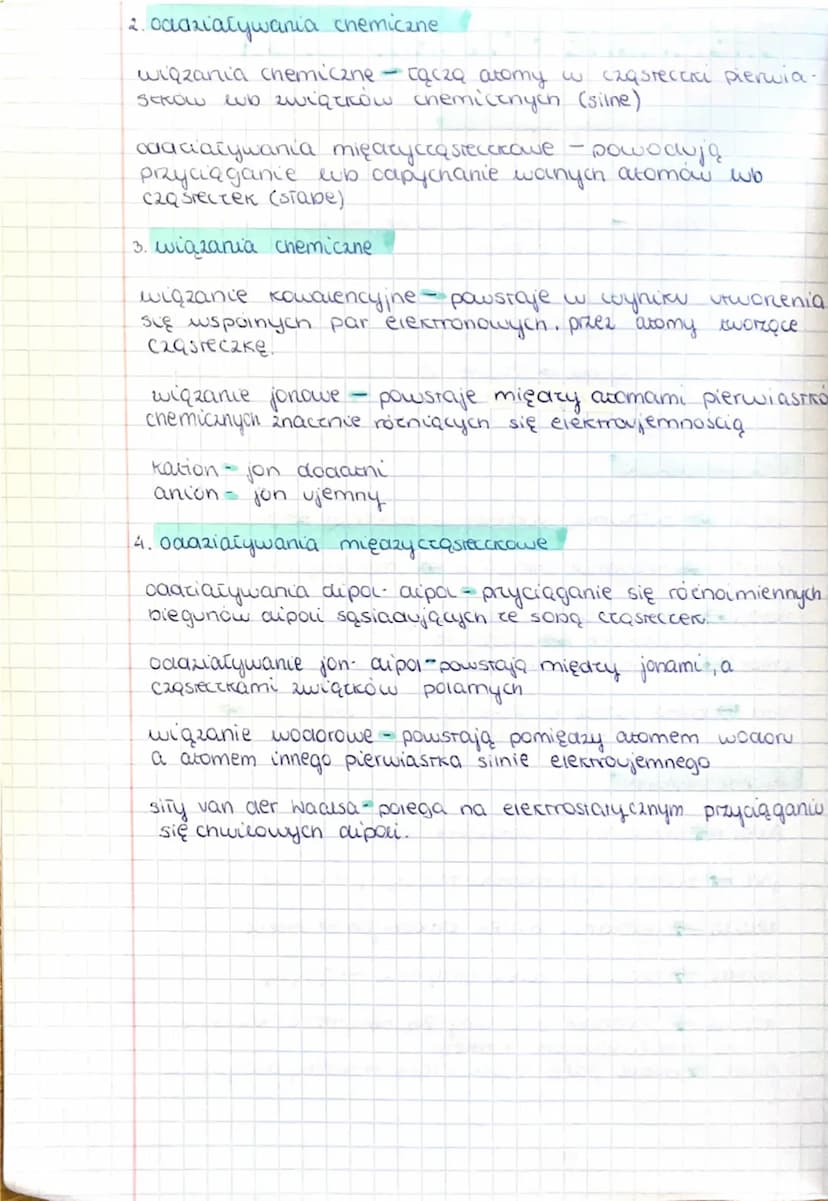 2. oddziaływania chemiczne
wiązania chemiczne – łączą atomy w cząsteczki pierwia-
stków lub związków chemicznych (silne)
oddziaływania międzycząsteczkowe – powodują
przyciąganie lub odpychanie wolnych atomów lub
cząsteczek (słabe)
3. wiązania chemiczne
wiązanie kowalencyjne – powstaje w wyniku utworzenia
się wspólnych par elektronowych. przez atomy tworzące
cząsteczkę.
wiązanie jonowe – powstaje między atomami pierwiastkó
chemicznych znacznie różniących się elektroujemnością
kation – jon dodatni
anion – jon ujemny
4. oddziaływania międzycząsteczkowe
oddziaływania dipol-dipol – przyciąganie się różnoimiennych
biegunów dipoli sąsiadujących ze sobą cząsteczek.
oddziaływanie jon-dipol – powstają między jonami, a
cząsteczkami związków polarnych
wiązanie wodorowe – powstają pomiędzy atomem wodoru
a atomem innego pierwiastka silnie elektroujemnego
siły van der waalsa – polega na elektrostatycznym przyciąganiu
się chwilowych dipoli.